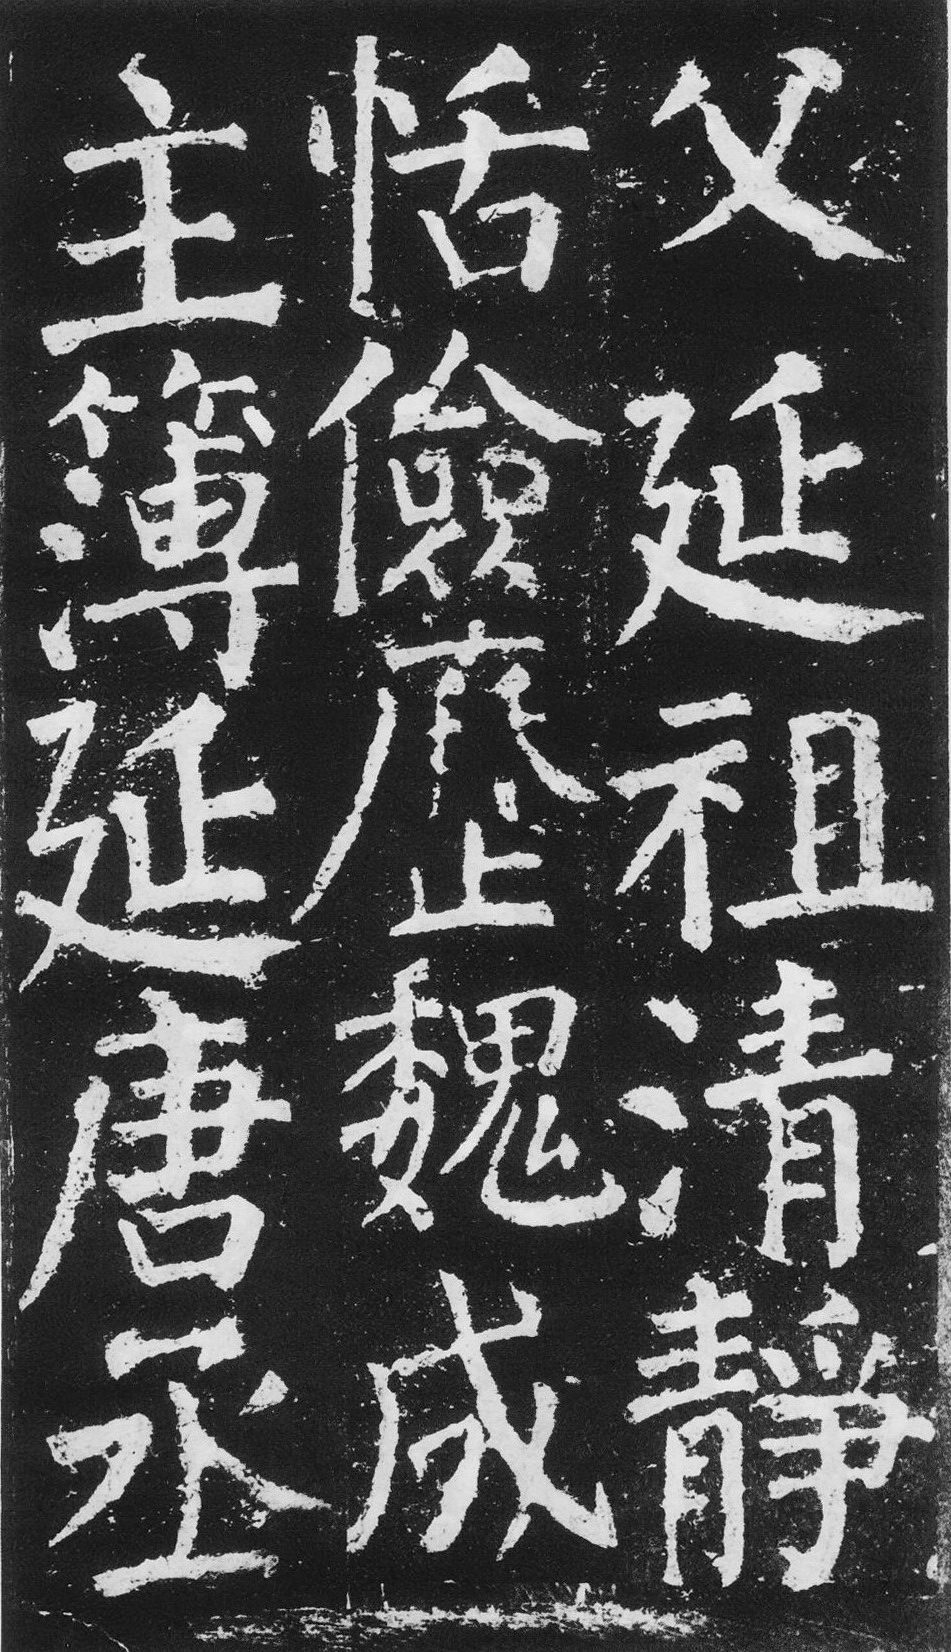 父延祖清靜
恬儉歷魏成
主簿延唐丞